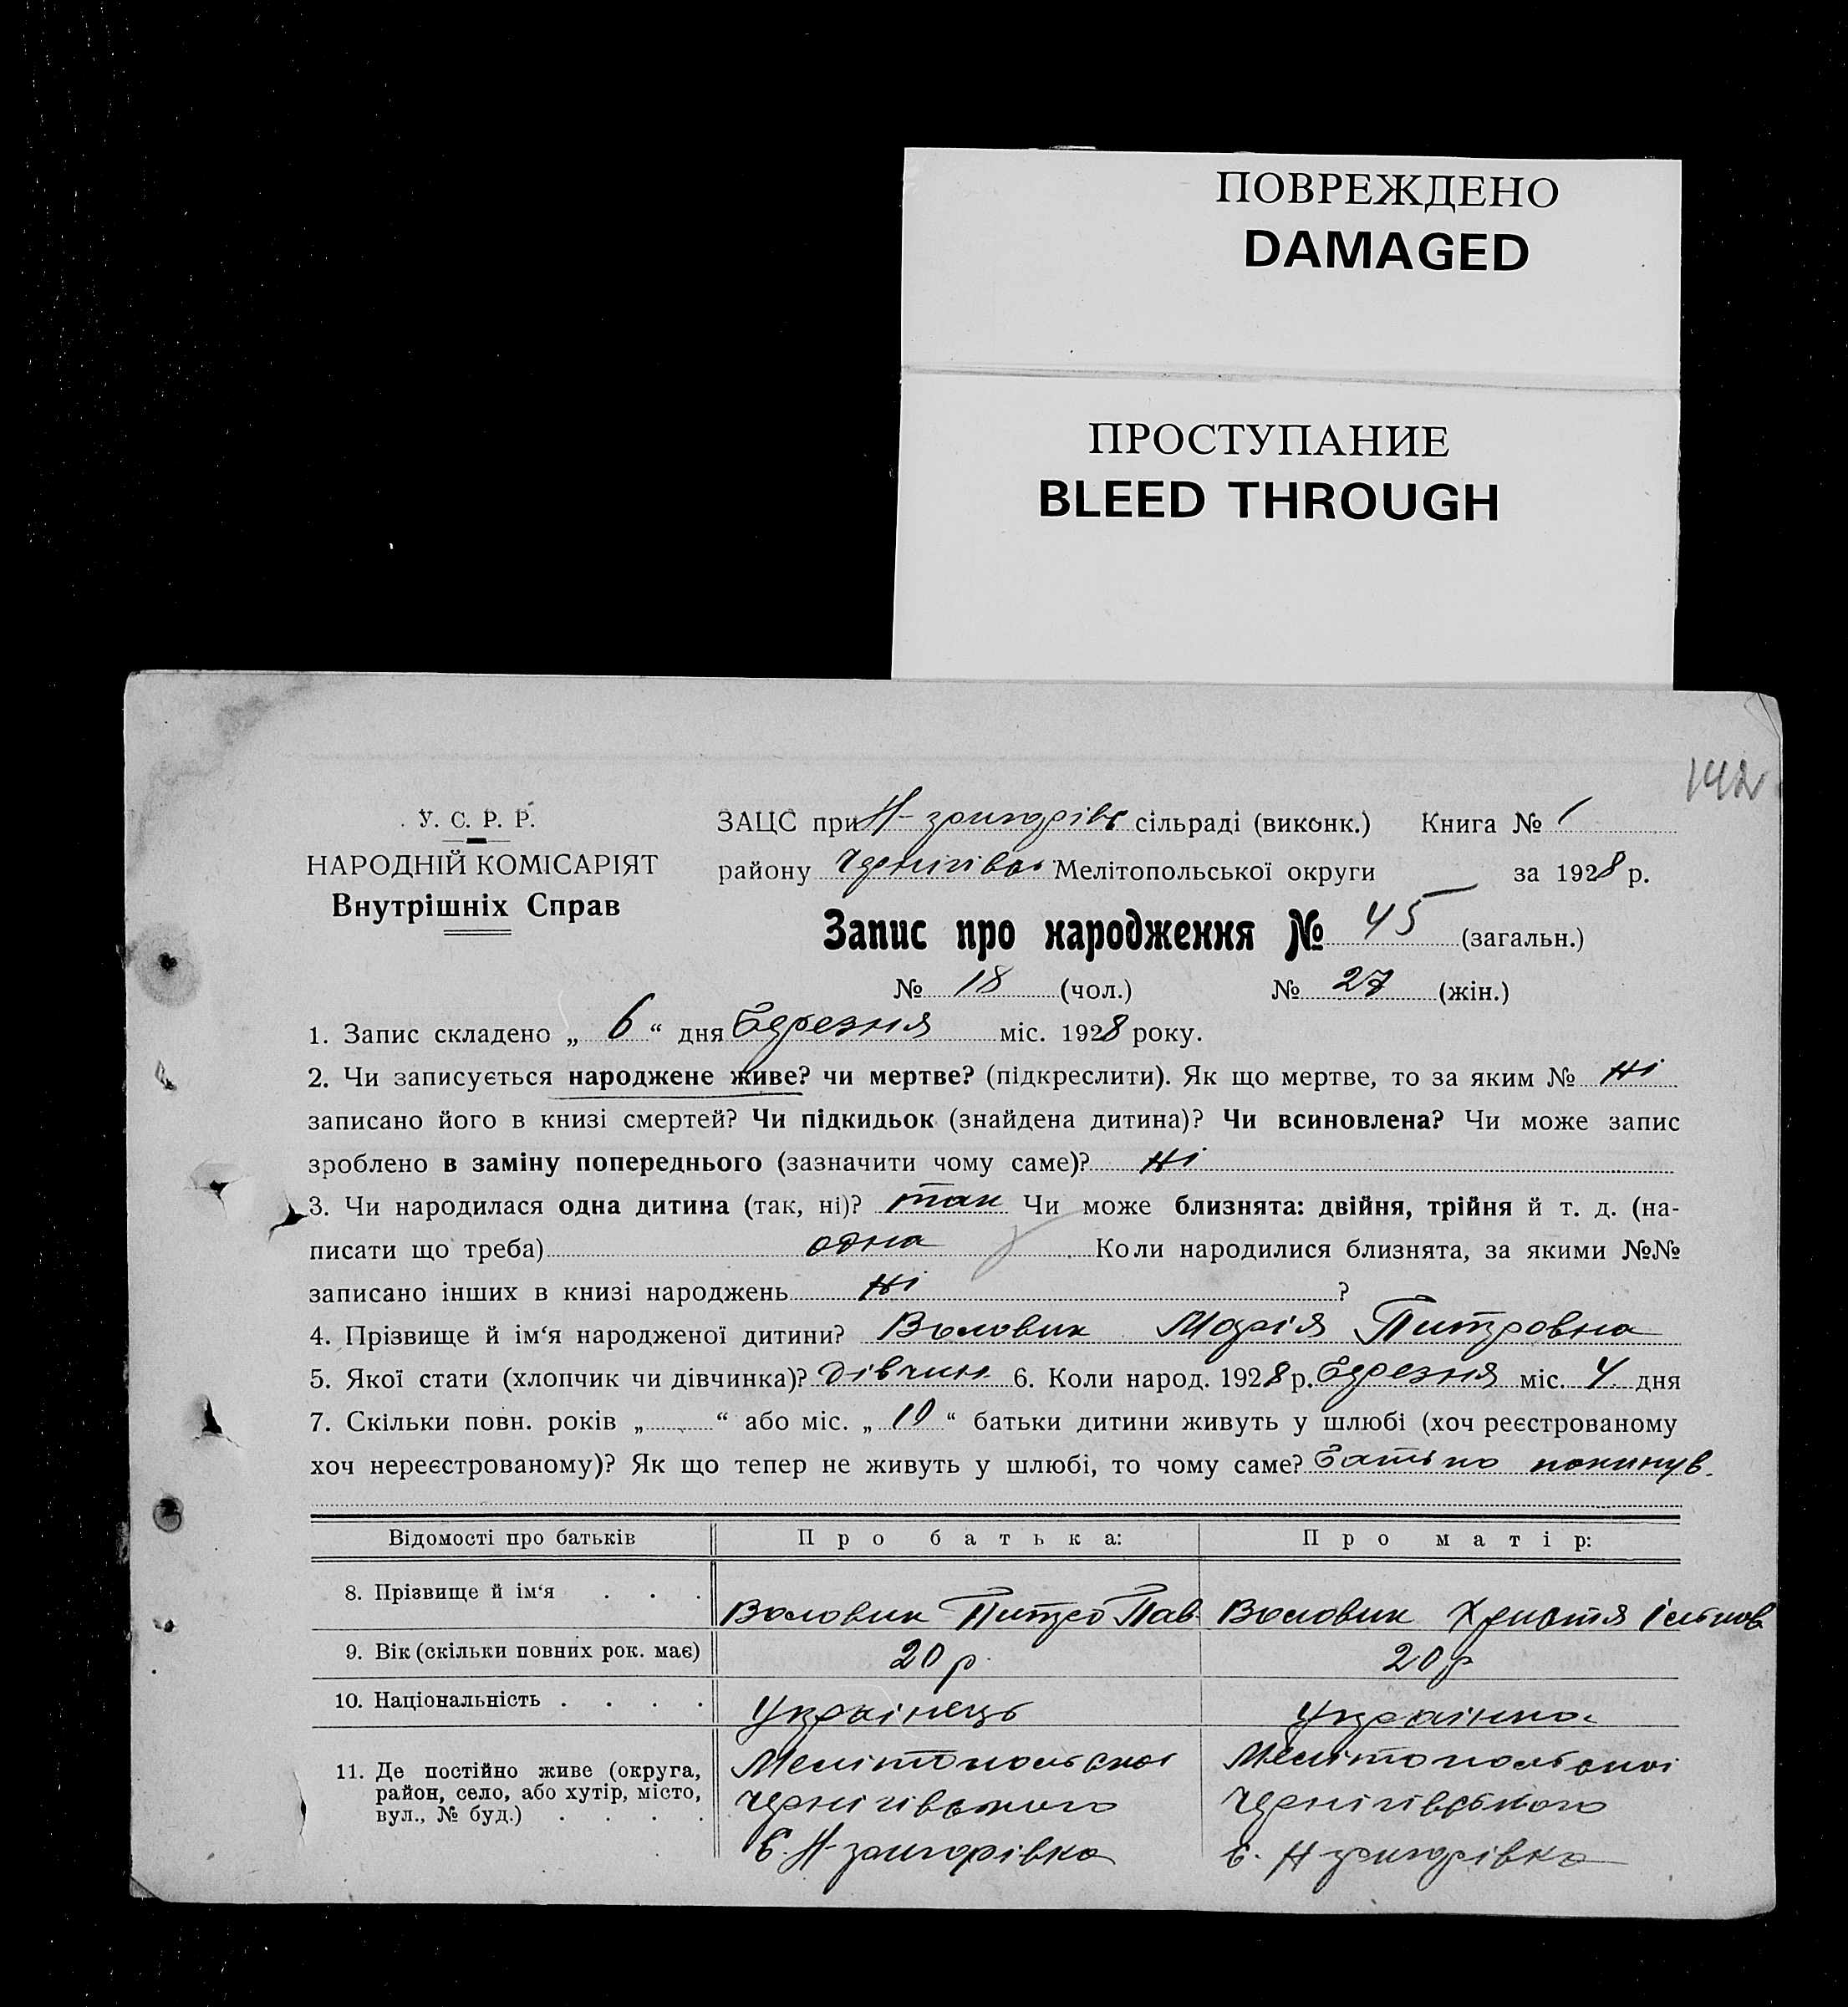 ПОВРЕЖДЕНО
DAMAGED
ПРОСТУПАНИЕ
BLEED THROUGH
142
У. С. Р. Р.
НАРОДНІЙ КОМІСАРІЯТ
Внутрішніх Справ
ЗАЦС при Н-григорівс сільраді (виконк.) Книга № 1
району Чернігівсь Мелітопольської округи за 1928 р.
Запис про народження № 45 (загальн.)
№ 18 (чол.) № 27 (жін.)
1. Запис складено „ 6 “ дня Березня міс. 1928 року.
2. Чи записується народжене живе? чи мертве? (підкреслити). Як що мертве, то за яким № Ні
записано його в книзі смертей? Чи підкидьок (знайдена дитина)? Чи всиновлена? Чи може запис
зроблено в заміну попереднього (зазначити чому саме)? Ні
3. Чи народилася одна дитина (так, ні)? так Чи може близнята: двійня, трійня й т. д. (на-
писати що треба) одна Коли народилися близнята, за якими №№
записано інших в книзі народжень Ні ?
4. Прізвище й ім‘я народженої дитини? Воловик Марія Питровна
5. Якої стати (хлопчик чи дівчинка)? дівчин 6. Коли народ. 1928 р. Березня міс. 4 дня
7. Скільки повн. років „ “ або міс. „ 10 “ батьки дитини живуть у шлюбі (хоч реєстрованому
хоч нереєстрованому)? Як що тепер не живуть у шлюбі, то чому саме? Батько покинув.
Відомості про батьків Про батька: Про матір:
8. Прізвище й ім‘я . . . Воловик Питро Пав Воловик Христя
9. Вік (скільки повних рок. має) 20 р. 20 р
10. Національність . . . . Українець Українка
11. Де постійно живе (округа, район, село, або хутір, місто, вул., № буд.) . . . .
Мелітопольскої Мелітопольскої
Чернігівського Чернігівського
с. Н-григорівка с. Н григорівка